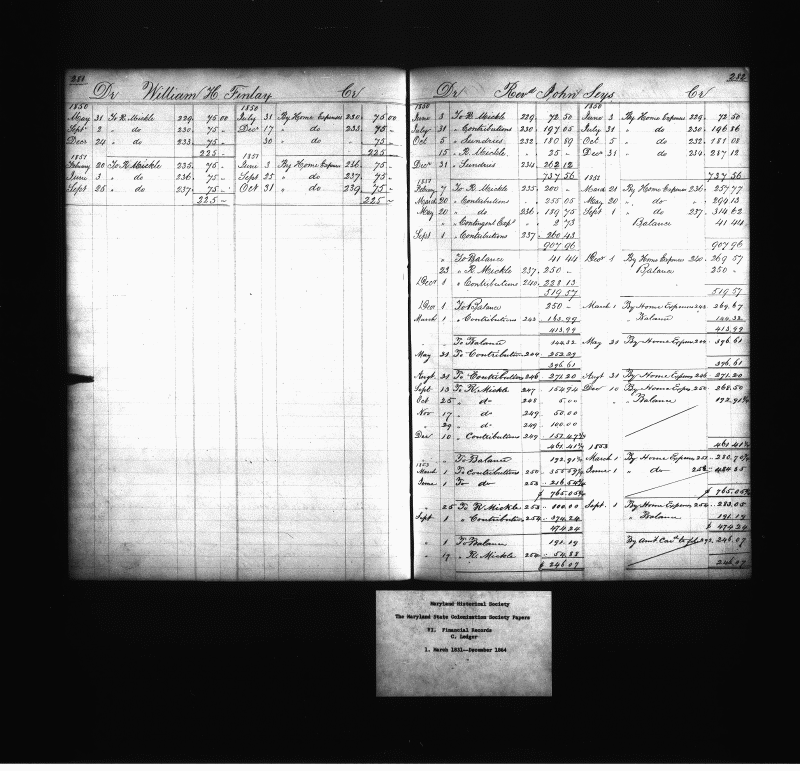 280
Dr William H. Finlay Cr
1850 1850
May 31 To R. Mickle 229. 75.00 July 31 By Home Expenses 230. 75.00
Sept 2 " do 230. 75 " Decr 17 " do 233. 75 "
Decr 24 " do 233. 75 " 30 " do " 75 "
225 " 225 "
1851 1851
Februay 20 To R. Mickle 235. 75 " June 3 By Home Expenses 236. 75 "
June 3 " do 236. 75 " Sept 25 " do 237. 75 "
Sept 25 " do 237. 75 " Oct 31 " do 239. 75 "
225 " 225 "
Dr Revd. John Seys Cr
1850 1850
June 3 To R. Mickle 229. 72 50 June 3 By Home Expenses 229. 72 50
July 31 " Contributions 230. 197 05 July 31 " do 230. 196 86
Oct 5 " Sundries 232. 180 89 Oct 5 " do 232. 181 08
15 " R. Mickle " 25 " Decr 31 " do 234. 287 12
Decr 31 " Sundries 234. 262 12
737 56 737 56
1851 1851
Februay 7 To R. Mickle 235. 200 " March 21 By Home Expenses 236. 257 77
March 20 " Contributions " 255 05 May 20 " do " 294 13
May 20 " do 236. 189 75 Sept 1 " do 237. 314 62
" " Contingent Exps " 2 73 Balance 41 44
Sept 1 " Contributions 237. 260 43
907 96 907 96
" To Balance 41 44 Decr 1 By Home Expenses 240. 269 57
23 " R. Mickle 237. 250 " Balance 250 "
Decr 1 " Contributions 240. 228 13
519 57 519 57
Decr 1 To Balance 250 " March 1 By Home Expenses 242 269.67
March 1 " Contributions 242 163.99 " Balance 144.32
413.99 413.99
" " To Balance 144.32 May 31 By Home Expen 244 396.61
May 31 To Contributions 244 252.29
396.61 396.61
Augt 31 To Contributions 246 271.20 Augt 31 By Home Expens 246 271.20
Sept 13 To R. Mickle 247 Dec 10 By Home Expens 250 268.50
Oct 25 " do 248 5.00 " Balance 192.91
Nov 17 " do 249 50.00
" 29 " do 249 100.00
Dec 10 " Contributions 249
461.41 461.41
1853
" " To Balance 192.91 March 1 By Home Expen 280.70
1853
March 1 To Contributions 250 June 1 " do
June 1 To do 253
$ 765.05 $ 765.05
" 25 To R. Mickle 253 100.00 Sept. 1 By Home Expens 254 283.05
Sept 1 " Contributions 254 374.24 " Balance 191.19
474.24 $ 474.24
" 1 To Balance 191.19 By Amt Card to fol 292 246.07
" 17 " R. Mickle 254 54.88
$ 246.07 246.07
Maryland Historical Society
The Maryland State Colonization Society Papers
VI. Financial Records
C. Ledger
1. March 1831--December 1864